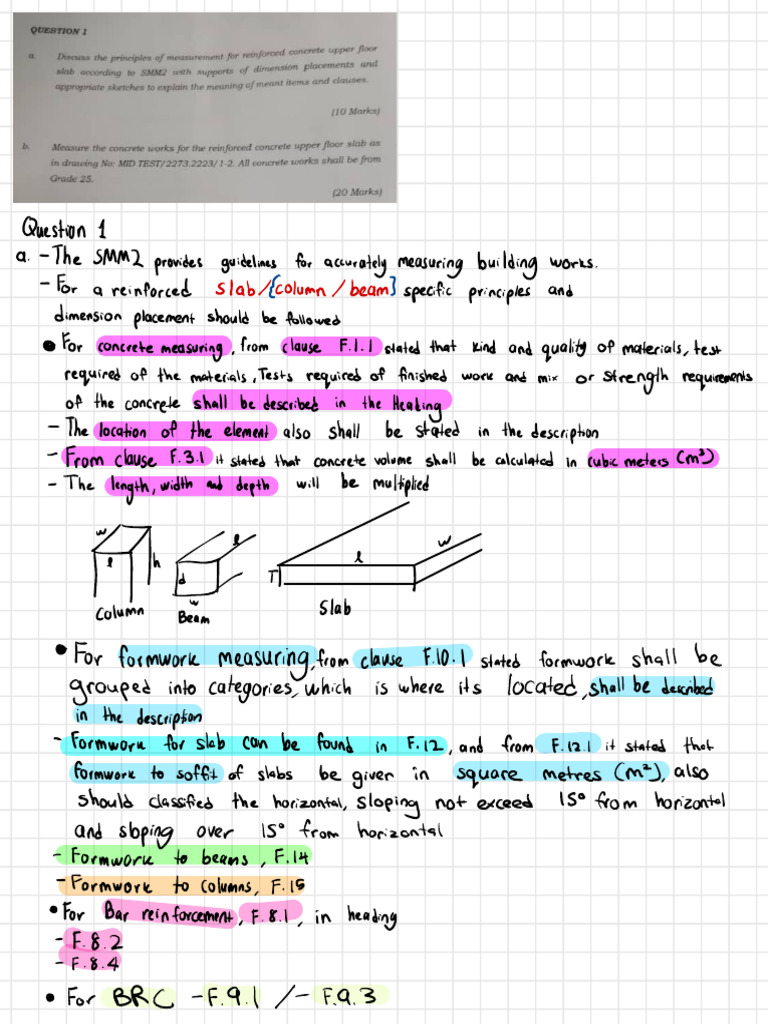 QUESTION 1
a. Discuss the principles of measurement for reinforced concrete upper floor
slab according to SMM2 with supports of dimension placements and
appropriate sketches to explain the meaning of meant items and clauses.
(10 Marks)
b. Measure the concrete works for the reinforced concrete upper floor slab as
in drawing No: MID TEST/2273.2223/1-2. All concrete works shall be from
Grade 25.
(20 Marks)
Question 1
a. - The SMM2 provides guidelines for accurately measuring building works.
- For a reinforced slab/[column / beam] specific principles and
dimension placement should be followed
• For concrete measuring, from clause F.1.1 stated that kind and quality of materials, test
required of the materials, Tests required of finished work and mix or strength requirements
of the concrete shall be described in the Heading
- The location of the element also shall be stated in the description
- From clause F.3.1 it stated that concrete volume shall be calculated in cubic meters (m³)
- The length, width and depth will be multiplied
w
l
h
Column
l
d
w
Beam
T
l
w
Slab
• For formwork measuring, from clause F.10.1 stated formwork shall be
grouped into categories, which is where its located, shall be described
in the description
- Formwork for slab can be found in F.12, and from F.12.1 it stated that
formwork to soffit of slabs be given in square metres (m²), also
should classified the horizontal, sloping not exceed 15° from horizontal
and sloping over 15° from horizontal
- Formwork to beams, F.14
- Formwork to columns, F.15
• For Bar reinforcement, F.8.1, in heading
- F.8.2
- F.8.4
• For BRC - F.9.1 / - F.9.3